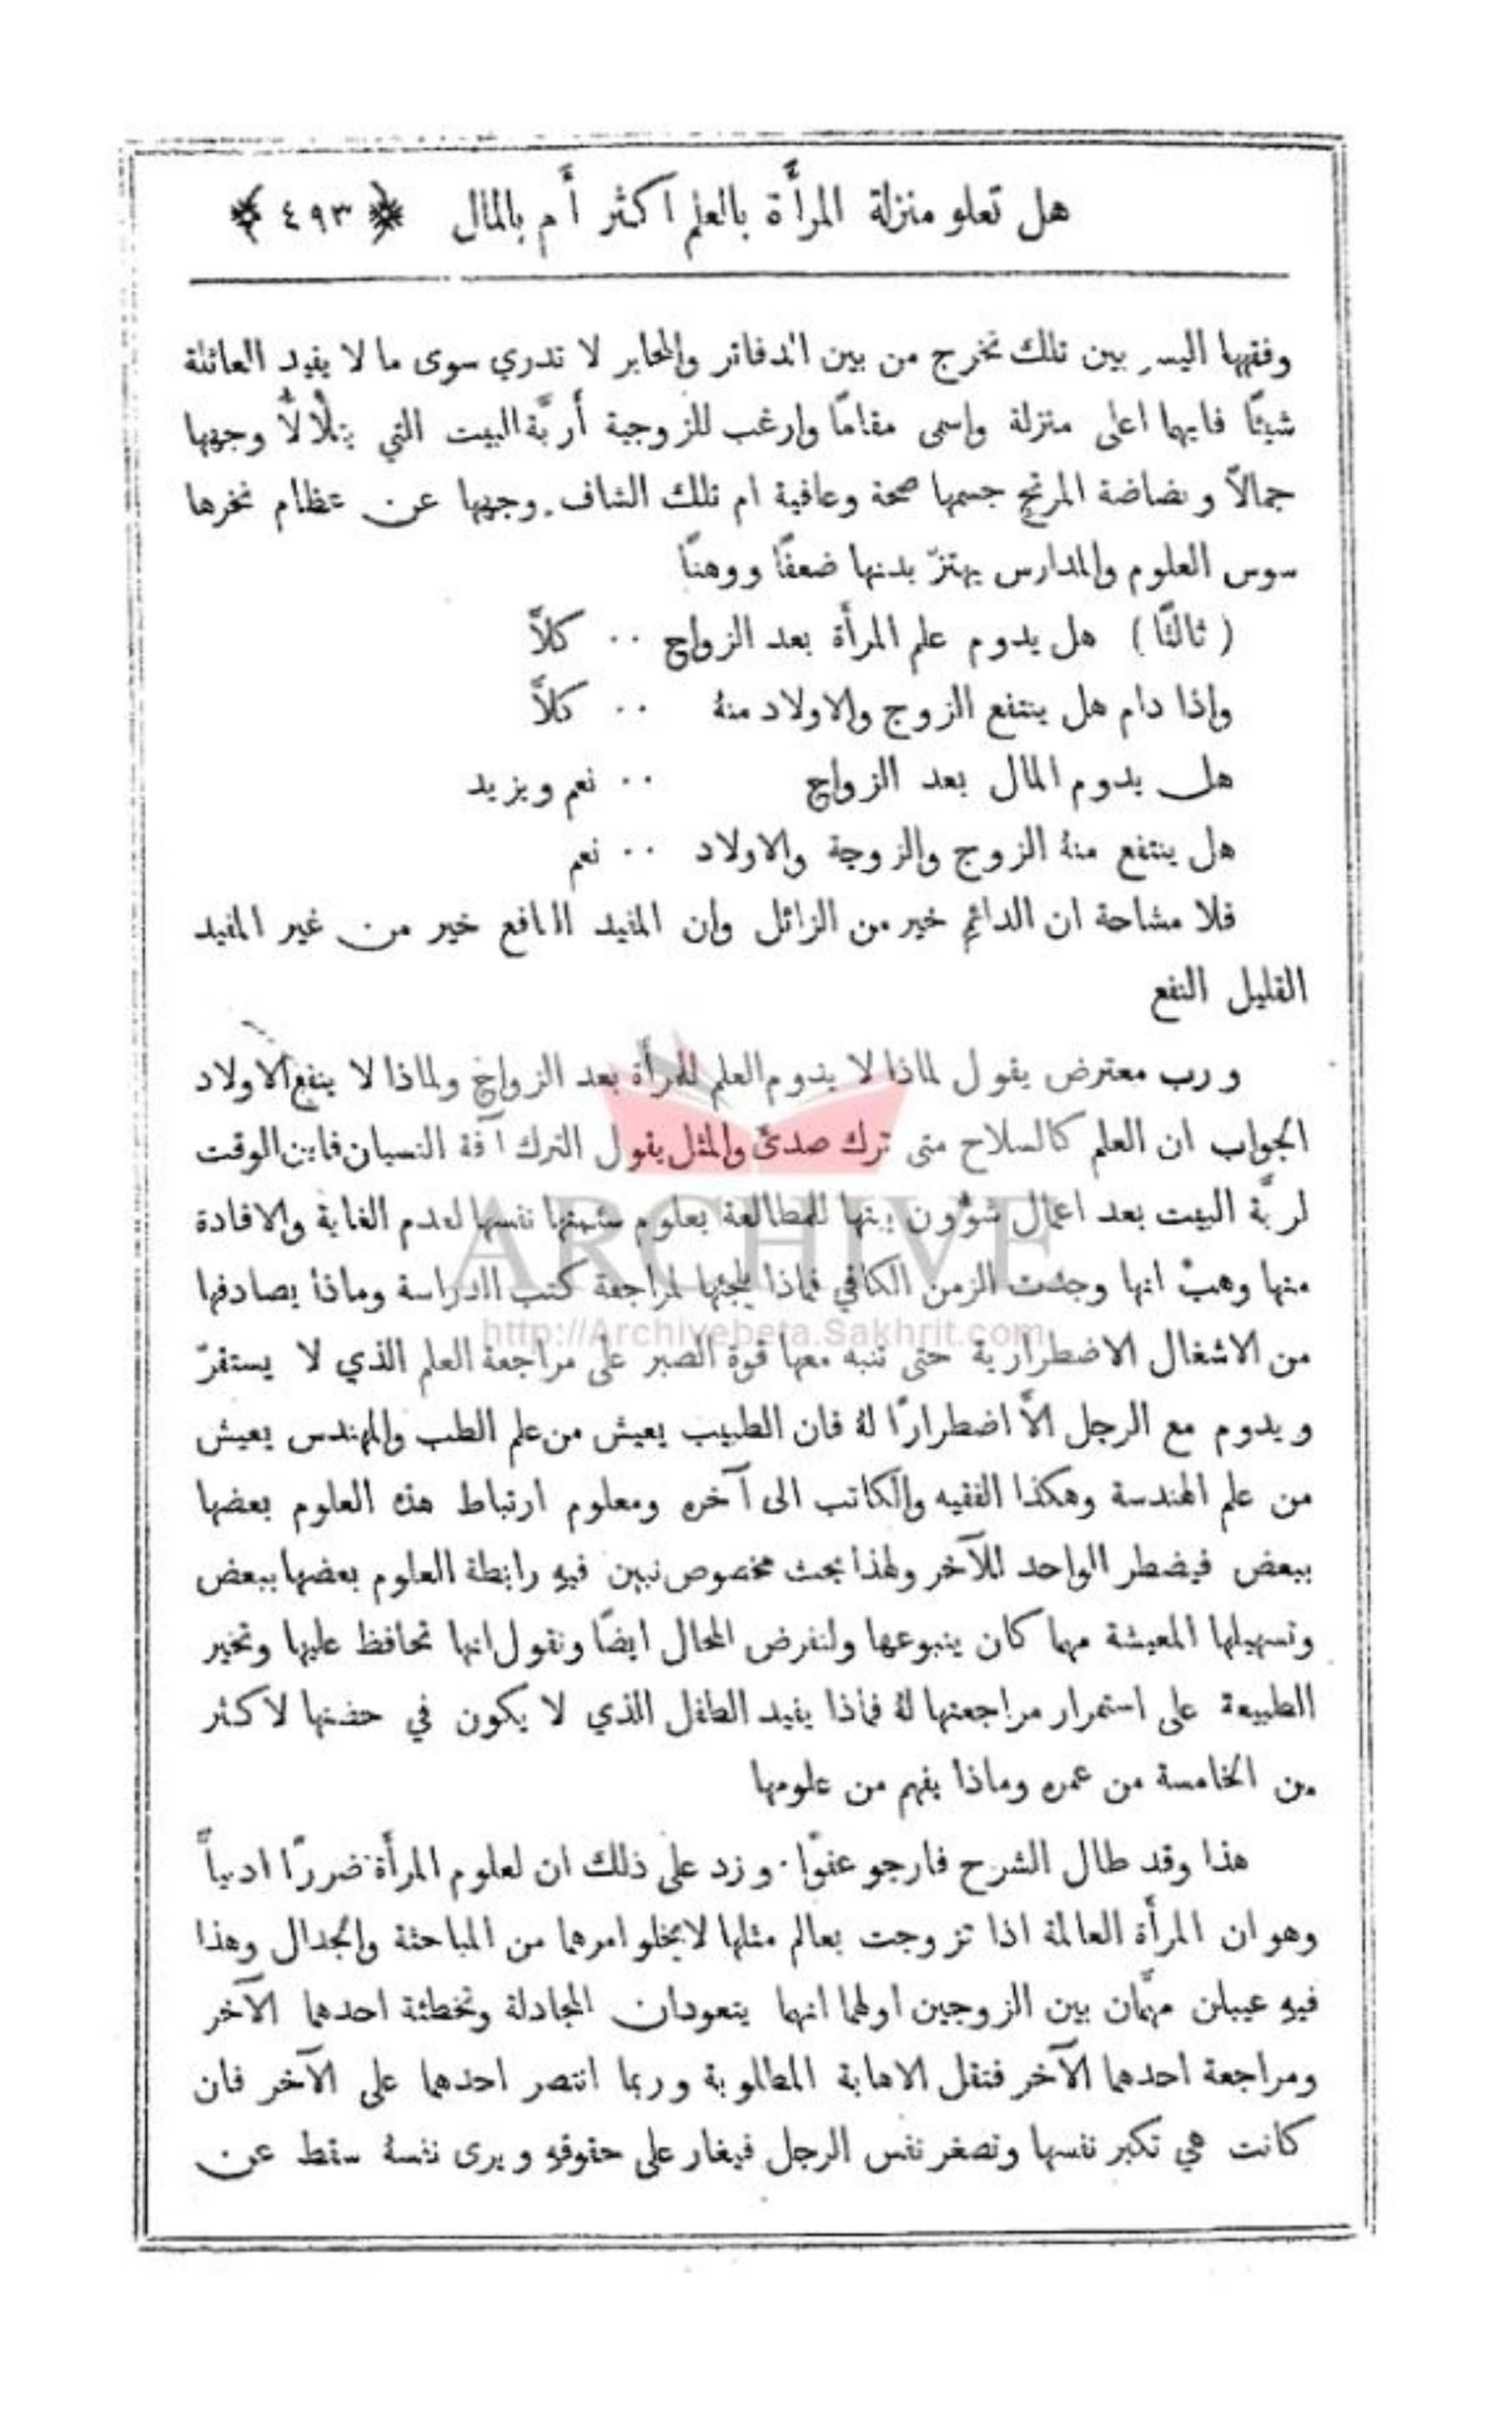 هل تعلو منزلة المرأة بالعلم اكثر أم بالمال ﴿ ٤٩٣ ﴾
وفقهها اليسر بين تلك تخرج من بين الدفاتر والمحابر لا تدري سوى ما لا يفيد العائلة
شيئًا فايهما اعلى منزلة واسمى مقامًا وارغب للزوجية أربَّة البيت التي يتلألأ وجهها
جمالاً وبضاضة المرنح جسمها صحة وعافية ام تلك الشاف وجهها عن عظام نخرها
سوس العلوم والمدارس يهتزّ بدنها ضعفًا ووهنًا
( ثالثًا ) هل يدوم علم المرأة بعد الزواج ٠٠ كلاَّ
واذا دام هل ينتفع الزوج والاولاد منهُ ٠٠ كلاَّ
هل يدوم المال بعد الزواج ٠٠ نعم ويزيد
هل ينتفع منهُ الزوج والزوجة والاولاد ٠٠ نعم
فلا مشاحة ان الدائم خير من الزائل وان المفيد النافع خير من غير المفيد
القليل النفع
ورب معترض يقول لماذا لا يدوم العلم للمرأة بعد الزواج ولماذا لا ينفع الاولاد
الجواب ان العلم كالسلاح متى ترك صدئ والمثل يقول الترك آفة النسيان فاين الوقت
لربَّة البيت بعد اعمال شؤون بيتها للمطالعة بعلوم سئمتها نفسها لعدم الغاية والافادة
منها وهبْ انها وجدت الزمن الكافي فماذا يلجئها لمراجعة كتب الدراسة وماذا يصادفها
http://Archivebeta.Sakhrit.com
ARCHIVE
من الاشغال الاضطرارية حتى تنبه معها قوة الصبر على مراجعة العلم الذي لا يستقرّ
ويدوم مع الرجل الاَّ اضطرارًا لهُ فان الطبيب يعيش من علم الطب والمهندس يعيش
من علم الهندسة وهكذا الفقيه والكاتب الى آخره ومعلوم ارتباط هذه العلوم بعضها
ببعض فيضطر الواحد للآخر ولهذا بحث مخصوص نبين فيهِ رابطة العلوم بعضها ببعض
وتسهيلها المعيشة مهما كان ينبوعها ولنفرض المحال ايضًا ونقول انها تحافظ عليها وتخير
الطبيعة على استمرار مراجعتها لهُ فماذا يفيد الطفل الذي لا يكون في حضنها لاكثر
من الخامسة من عمره وماذا يفهم من علومها
هذا وقد طال الشرح فارجو عفوًا ٠ وزد على ذلك ان لعلوم المرأة ضررًا ادبياً
وهو ان المرأة العالمة اذا تزوجت بعالم مثلها لا يخلو امرهما من المباحثة والجدال وهذا
فيهِ عيبان مهمَّان بين الزوجين اولهما انهما يتعودان المجادلة وتخطئة احدهما الآخر
ومراجعة احدهما الآخر فتقل الاهابة المطلوبة وربما انتصر احدهما على الآخر فان
كانت هي تكبر نفسها وتصغر نفس الرجل فيغار على حقوقهِ ويرى نفسهُ سقط عن